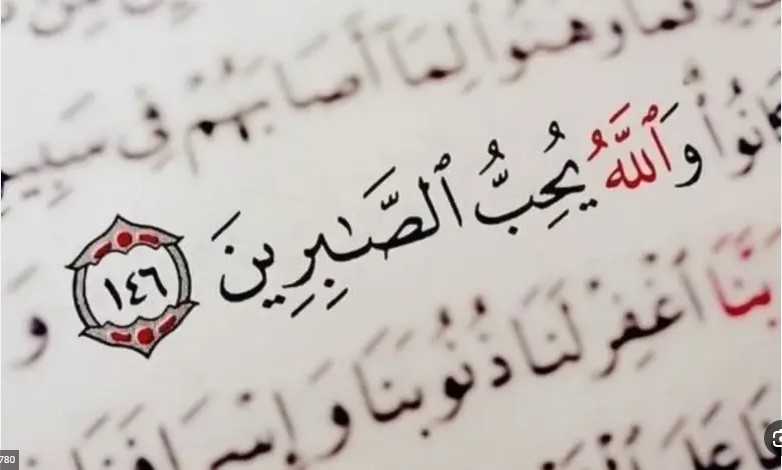 فما وهنوا لِمَا أَصَابَهُمْ فِى سَبِيلِ
كَانُوا۟ وَٱللَّهُ يُحِبُّ ٱلصَّـٰبِرِينَ ١٤٦ و
بَّنَا ٱغْفِرْ لَنَا ذُنُوبَنَا وَإِسْرَافَنَا
780